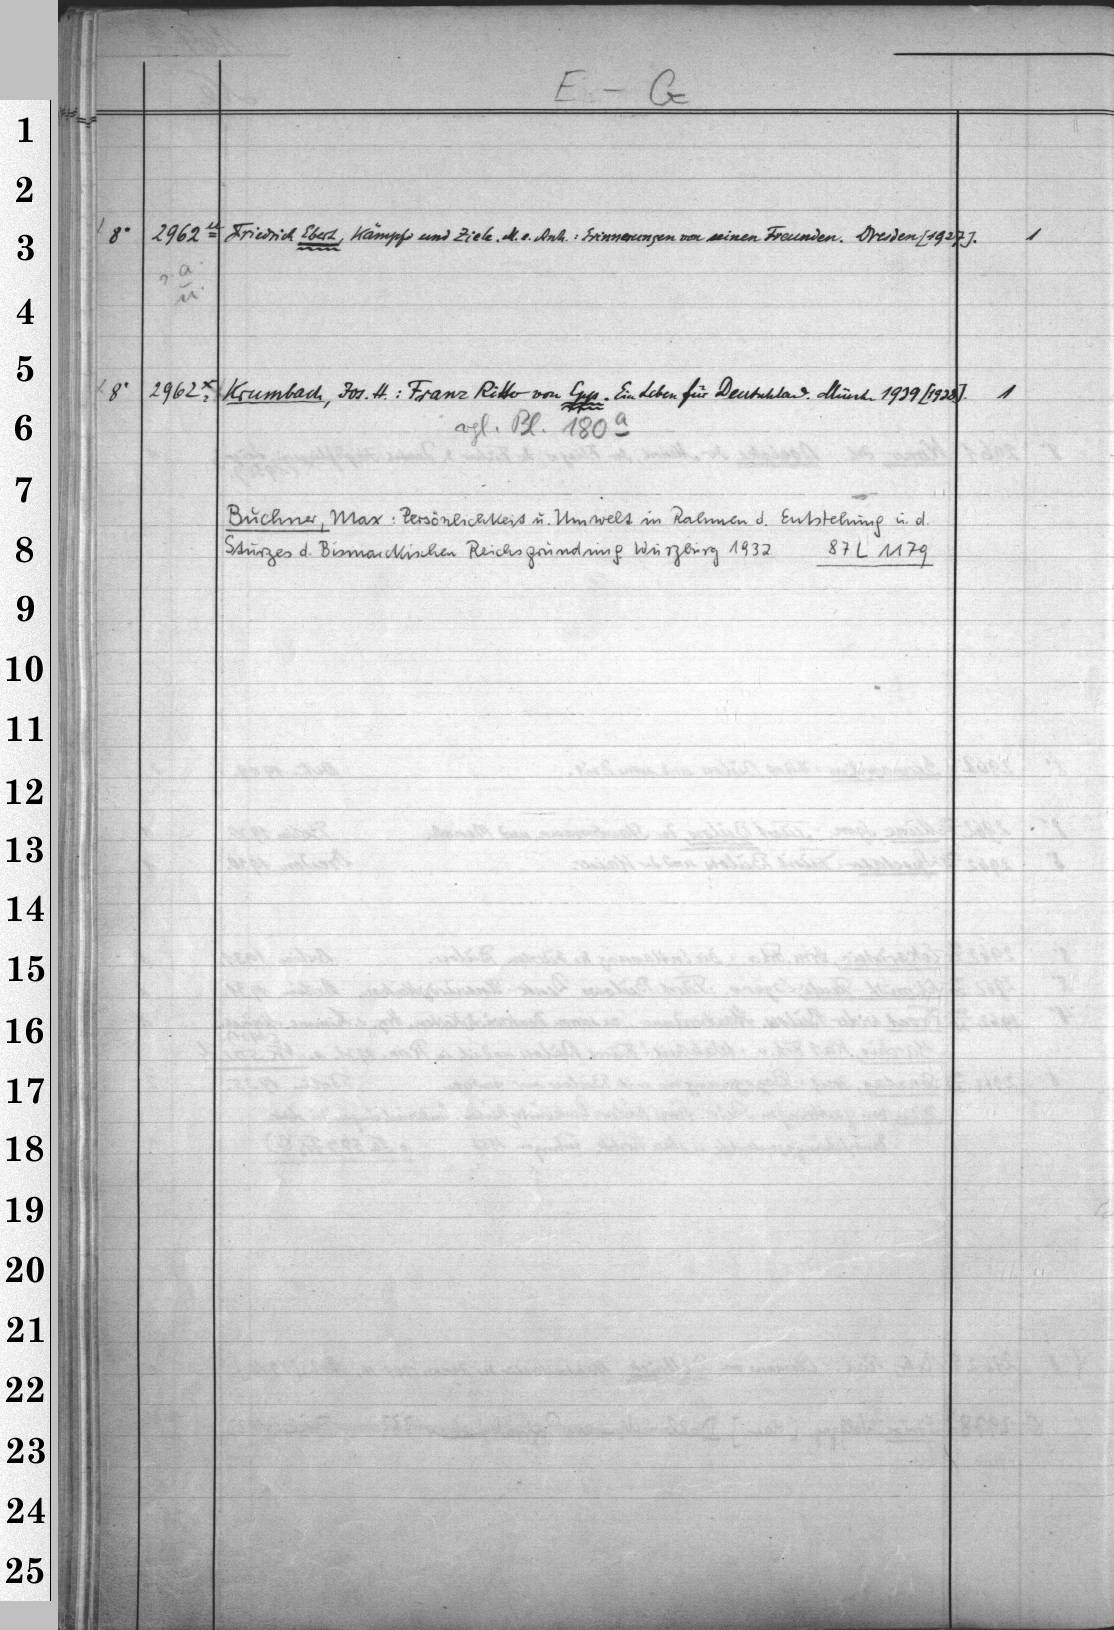 E – G
1
2
3 8° 2962 u Friedrich Ebert, Kämpfe und Ziele. M. e. Anh.: Erinnerungen von seinen Freunden. Dresden [1927]. 1
s. a.
u.
4
5 8° 2962 x Krumbach, Jos. H.: Franz Ritter von Epp. Ein Leben für Deutschland. Münch. 1939 [1938]. 1
6 vgl. Bl. 180 a
7
Buchner, Max: Persönlichkeit u. Umwelt in Rahmen d. Entstehung u. d.
8 Sturzes d. Bismarckischen Reichsgründung Würzburg 1932 87 L 1179
9
10
11
12
13
14
15
16
17
18
19
20
21
22
23
24
25